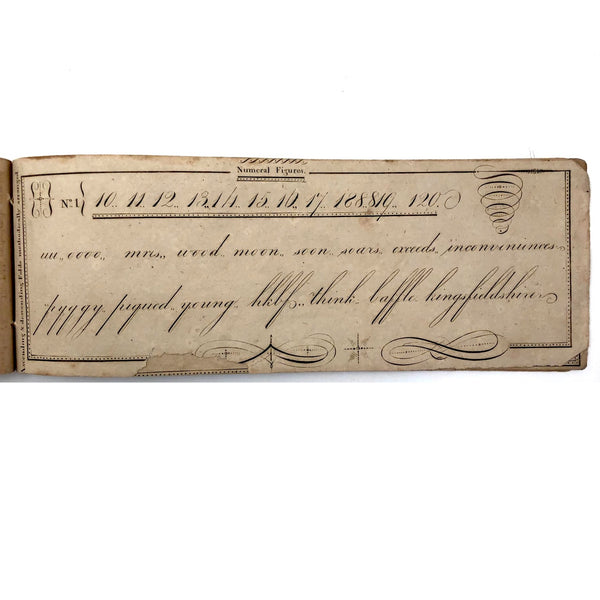 Numeral Figures.
No. 1 10,, 11,, 12,, 13,14,, 15,, 16,, 17,, 188,819,, 120.
uu,, oooo,, mrcs,, wood,, moon,, soon,, soars,, exceeds,, inconveniences
pyggy,, piqued,, young,, hkbf,, think,, baffle,, kingsfieldshire
Ascending & descending Folds methodically arranged